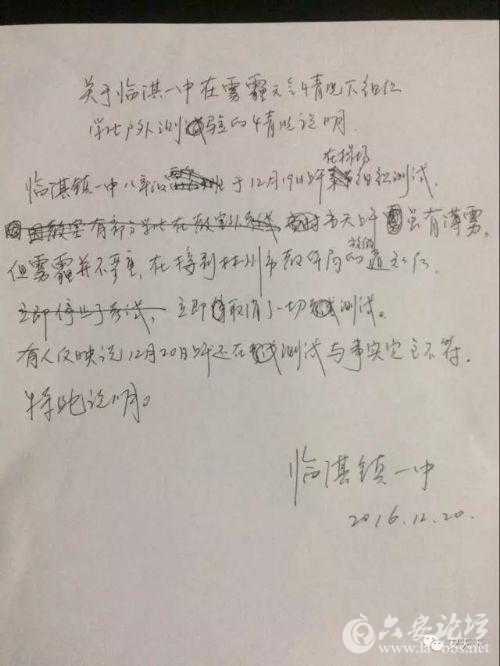 关于临淇一中在雾霾天气情况下组织
学生户外测试验的情况说明
临淇镇一中八年级于12月19日上午在操场组织测试,
因教室有部分学生在教室外考试 当天上午虽有薄雾,
但雾霾并不严重,在接到林州市教体局的通知后
立即停止了考试,立即取消了一切测试。
有人反映说12月20日上午还在测试与事实完全不符。
特此说明。
临淇镇一中
2016.12.20.
六安论坛
www.luobbs.net